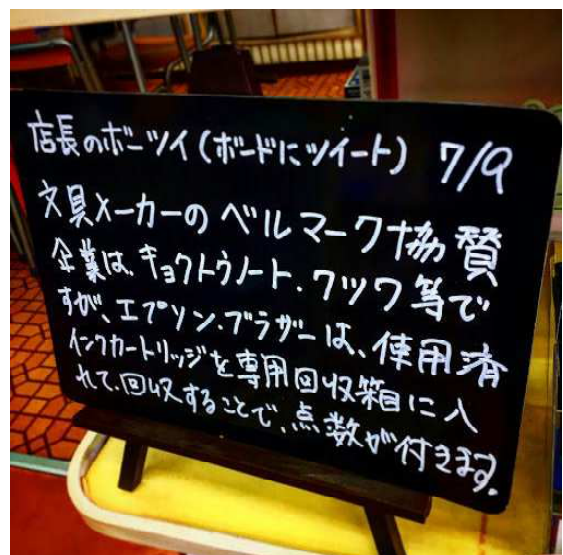 店長のボーツイ(ボードにツイート) 7/9
文具メーカーのベルマーク協賛
企業は、キョクトウノート、クツワ等で
すが、エプソン、ブラザーは、使用済
インクカートリッジを専用回収箱に入
れて、回収することで、点数が付きます。